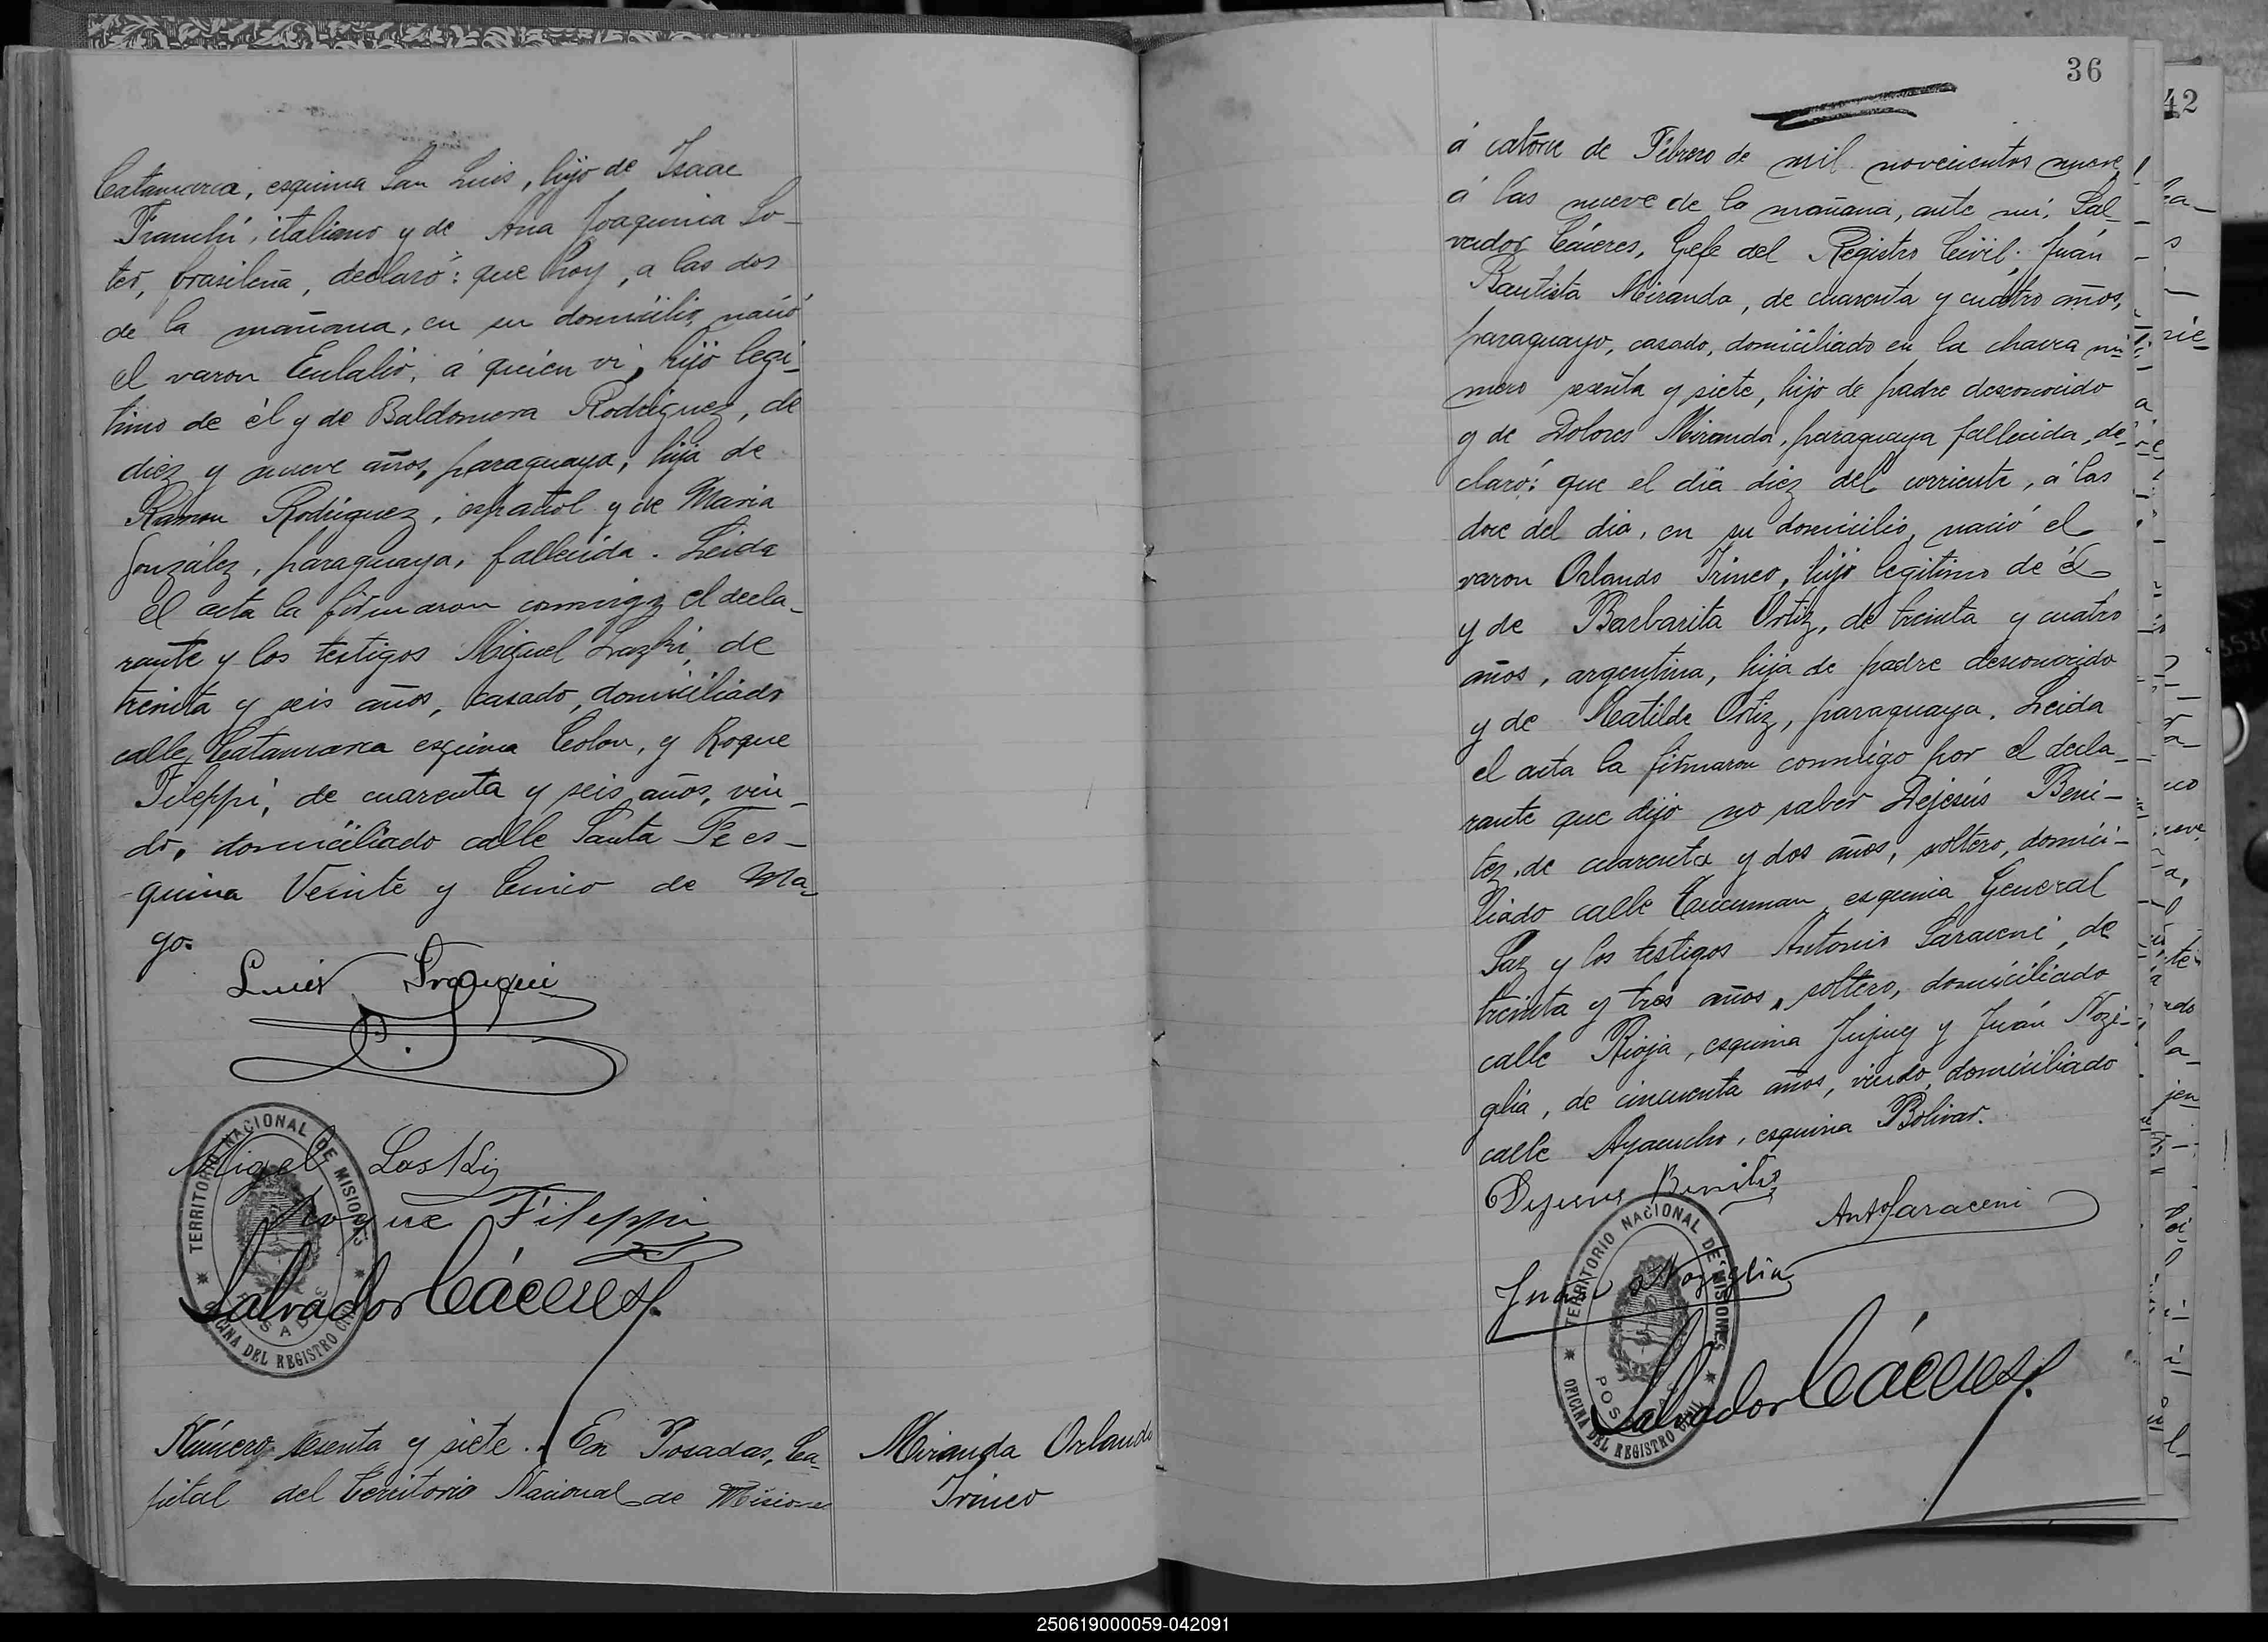 Catamarca, esquina San Luis, hijo de Isaac
Franchi, italiano y de Ana Joaquina So-
ter, brasileña, declaró: que hoy, a las dos
de la mañana, en su domicilio, nació
el varon Eulalio, á quien vi, hijo legi-
timo de él y de Baldomera Rodriguez, de
diez y nueve años, paraguaya, hija de
Ramon Rodriguez, español y de Maria
González, paraguaya, fallecida. Leida
el acta la firmaron conmigo el decla-
rante y los testigos Miguel Lazki, de
treinta y seis años, casado, domiciliado
calle Catamarca esquina Colon, y Roque
Fileppi, de cuarenta y seis años, viu-
do, domiciliado calle Santa Fe es-
quina Veinte y Cinco de Ma-
yo.
Luis Franqui
Migel Laski
Roque Fileppi
Salvador Cáceres
TERRITORIO NACIONAL DE MISIONES
POSADAS
OFICINA DEL REGISTRO CIVIL
Número sesenta y siete. En Posadas, Ca-
pital del Territorio Nacional de Misiones
Miranda Orlando
Irineo
36
á catorce de Febrero de mil novecientos nueve,
á las nueve de la mañana, ante mí, Sal-
vador Cáceres, Gefe del Registro Civil; Juán
Bautista Miranda, de cuarenta y cuatro años,
paraguayo, casado, domiciliado en la chacra nú-
mero sesenta y siete, hijo de padre desconocido
y de Dolores Miranda, paraguaya fallecida, de-
claró: que el día diez del corriente, á las
doce del dia, en su domicilio, nació el
varon Orlando Irineo, hijo legitimo de él
y de Barbarita Ortiz, de treinta y cuatro
años, argentina, hija de padre desconocido
y de Matilde Ortiz, paraguaya. Leida
el acta la firmaron conmigo por el decla-
rante que dijo no saber Dejesús Beni-
tez, de cuarenta y dos años, soltero, domici-
liado calle Tucuman esquina General
Paz y los testigos Antonio Saraceni, de
treinta y tres años, soltero, domiciliado
calle Rioja, esquina Jujuy y Juán Nozi-
glia, de cincuenta años, viudo, domiciliado
calle Ayacucho, esquina Bolivar.
Dejesus Benites
Anto Saraceni
Juan Noziglia
Salvador Cáceres
TERRITORIO NACIONAL DE MISIONES
OFICINA DEL REGISTRO CIVIL
42
250619000059-042091